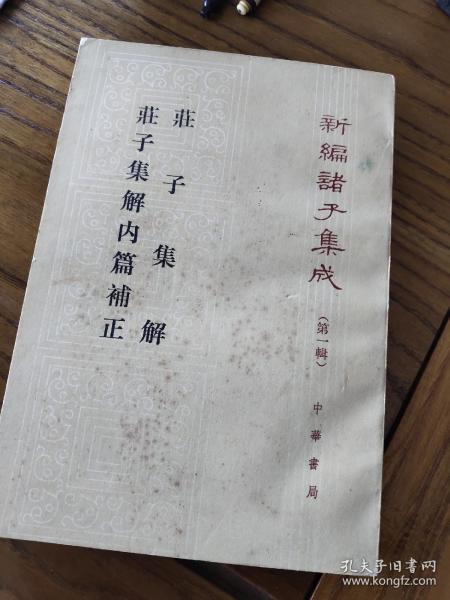 新編諸子集成
（第一輯）
中華書局
莊子集解
莊子集解内篇補正
孔夫子旧书网
www.kongfz.com